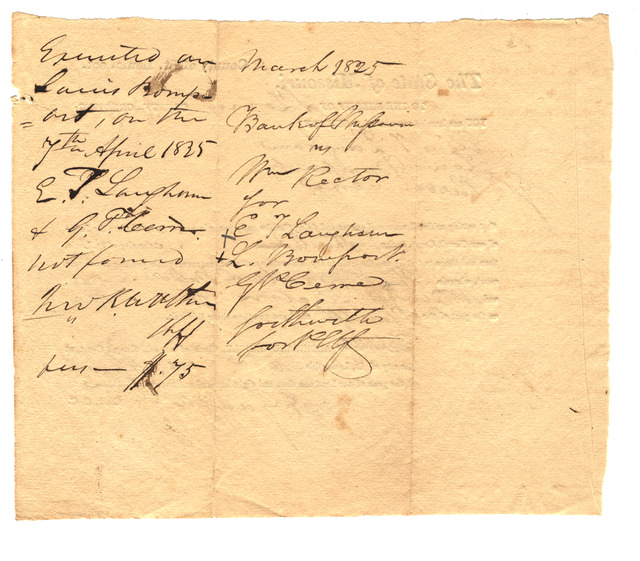 Executed on
Louis Bomp-
=art, on the
7th April 1825
E. T. Langham
& G. P. Cerre
not found
Jno K. Walker
Shff
fees — $.75
March 1825
Bank of Missouri
vs
Wm Rector
for
+ E T Langham
+ L. Bompart.
G P Cerre
forthwith
for Plff
The State of Missouri,
County